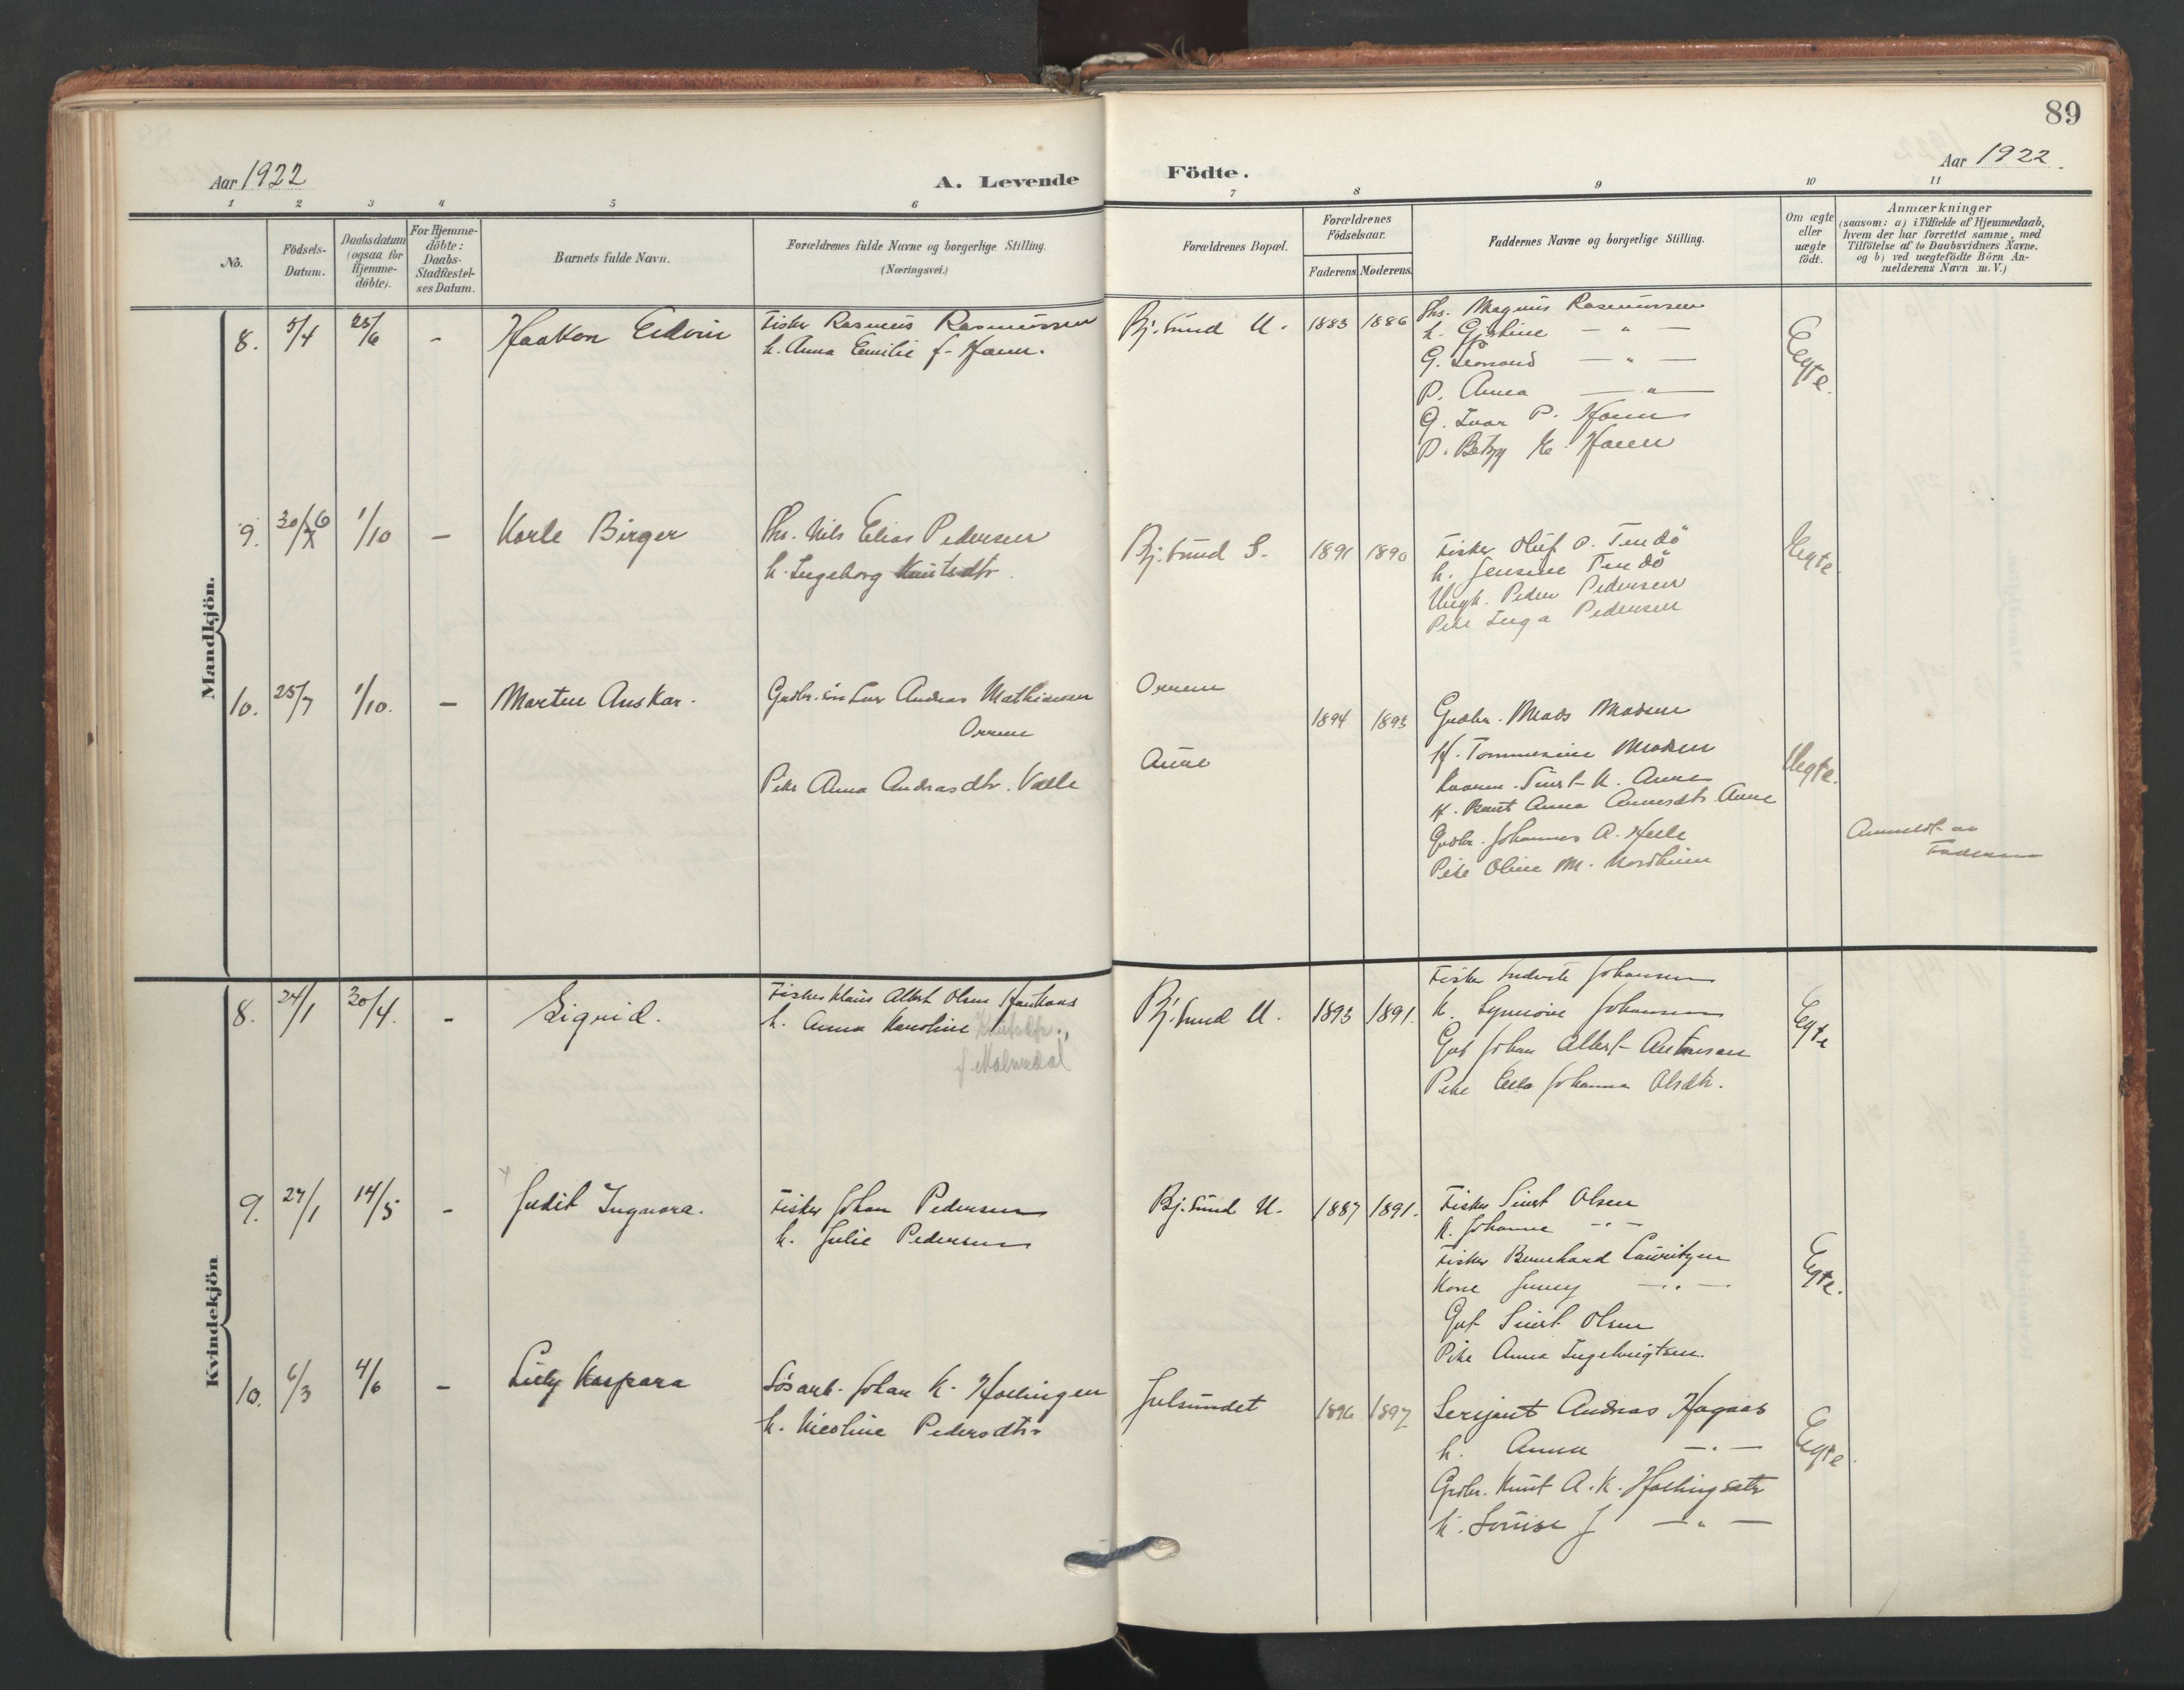 89
Aar 1922
A. Levende
Födte.
Aar 1922.
1 2 3 4 5 6 7 8 9 10 11
No.
Födsels-
Datum.
Daabsdatum
(ogsaa for
Hjemme-
döbte).
For Hjemme-
döbte:
Daabs-
Stadfæstel-
ses Datum.
Barnets fulde Navn.
Forældrenes fulde Navne og borgerlige Stilling.
(Næringsvei.)
Forældrenes Bopæl.
Forældrenes
Födselsaar.
Faderens Moderens.
Faddernes Navne og borgerlige Stilling.
Om ægte
eller
uægte
födt.
Anmærkninger
(saasom: a) i Tilfælde af Hjemmedaab,
hvem der har forrettet samme, med
Tilföielse af to Daabsvidners Navne.
og b) ved uægtefödte Börn An-
melderens Navn m. V.)
Mandkjön.
8. 5/4 25/6 - Haakon Edvin
Fisker Rasmus Rasmussen
k. Anna Emilie f. Havn.
Bj.sund U. 1883 1886
Ths. Magnus Rasmussen
k. Gjertine — " —
G. Leonard — " —
P. Anna — " —
G. Ivar P. Havn
P. Betzy K. Havn
Egte.
9. 30/6 1/10 - Karle Birger
Ths. Nils Elias Pedersen
k. Ingeborg Knutsdtr.
Bj.sund S. 1891 1890
Fisker Oluf O. Tendö
k. Jensine Tendö
Ungk. Peder Pedersen
Pike Inga Pedersen
Egte
10. 25/7 1/10. - Marten Anskar.
Grdbr. sön Lars Andreas Mathiassen
Orrem
Pike Anna Andreasdtr. Valle
Orrem
Aune
1894 1893
Grdbr. Mads Madsen
K. Tommesine Madsen
Kaarm. Sivert K. Aune
K. Anna Aune
Grdbr. Johannes A. Helle
Pike Oline M. Nordheim
Uegte.
Anmeldt av
Faderen
Kvindekjön
8. 24/1 30/4. - Sigrid.
Fisker Klaus Albert Olsen Haukaas
k. Anna Karoline Knutsdtr.,
f. Malmedal
Bj.sund U. 1893 1891.
Fisker Ludvik Johansen
K. Synnöve Johansen
Gut Johan Albert Antonsen
Pike Ella Johanna Olsdtr.
Egte
9. 27/1 14/5 - Judit Ingvora.
Fisker Johan Pedersen
k. Julie Pedersen
Bj.sund U. 1887 1891.
Fisker Sivert Olsen
K. Johanne — " —
Fisker Bernhard Lauritzen
Kone Jenny — " —
Gut Sivert Olsen
Pike Anna Ingebrigtsen.
Egte.
10. 6/3 4/6 - Lilly Kaspara
Lösarb. Johan K. Hollingen
k. Nicoline Pedersdtr.
Julsundet 1896 1897
Serjant Andreas Hagaas
k. Anna — " —
Grdbr. Knut A. K. Hollingsæter
k. Lovise J — " —
Egte.